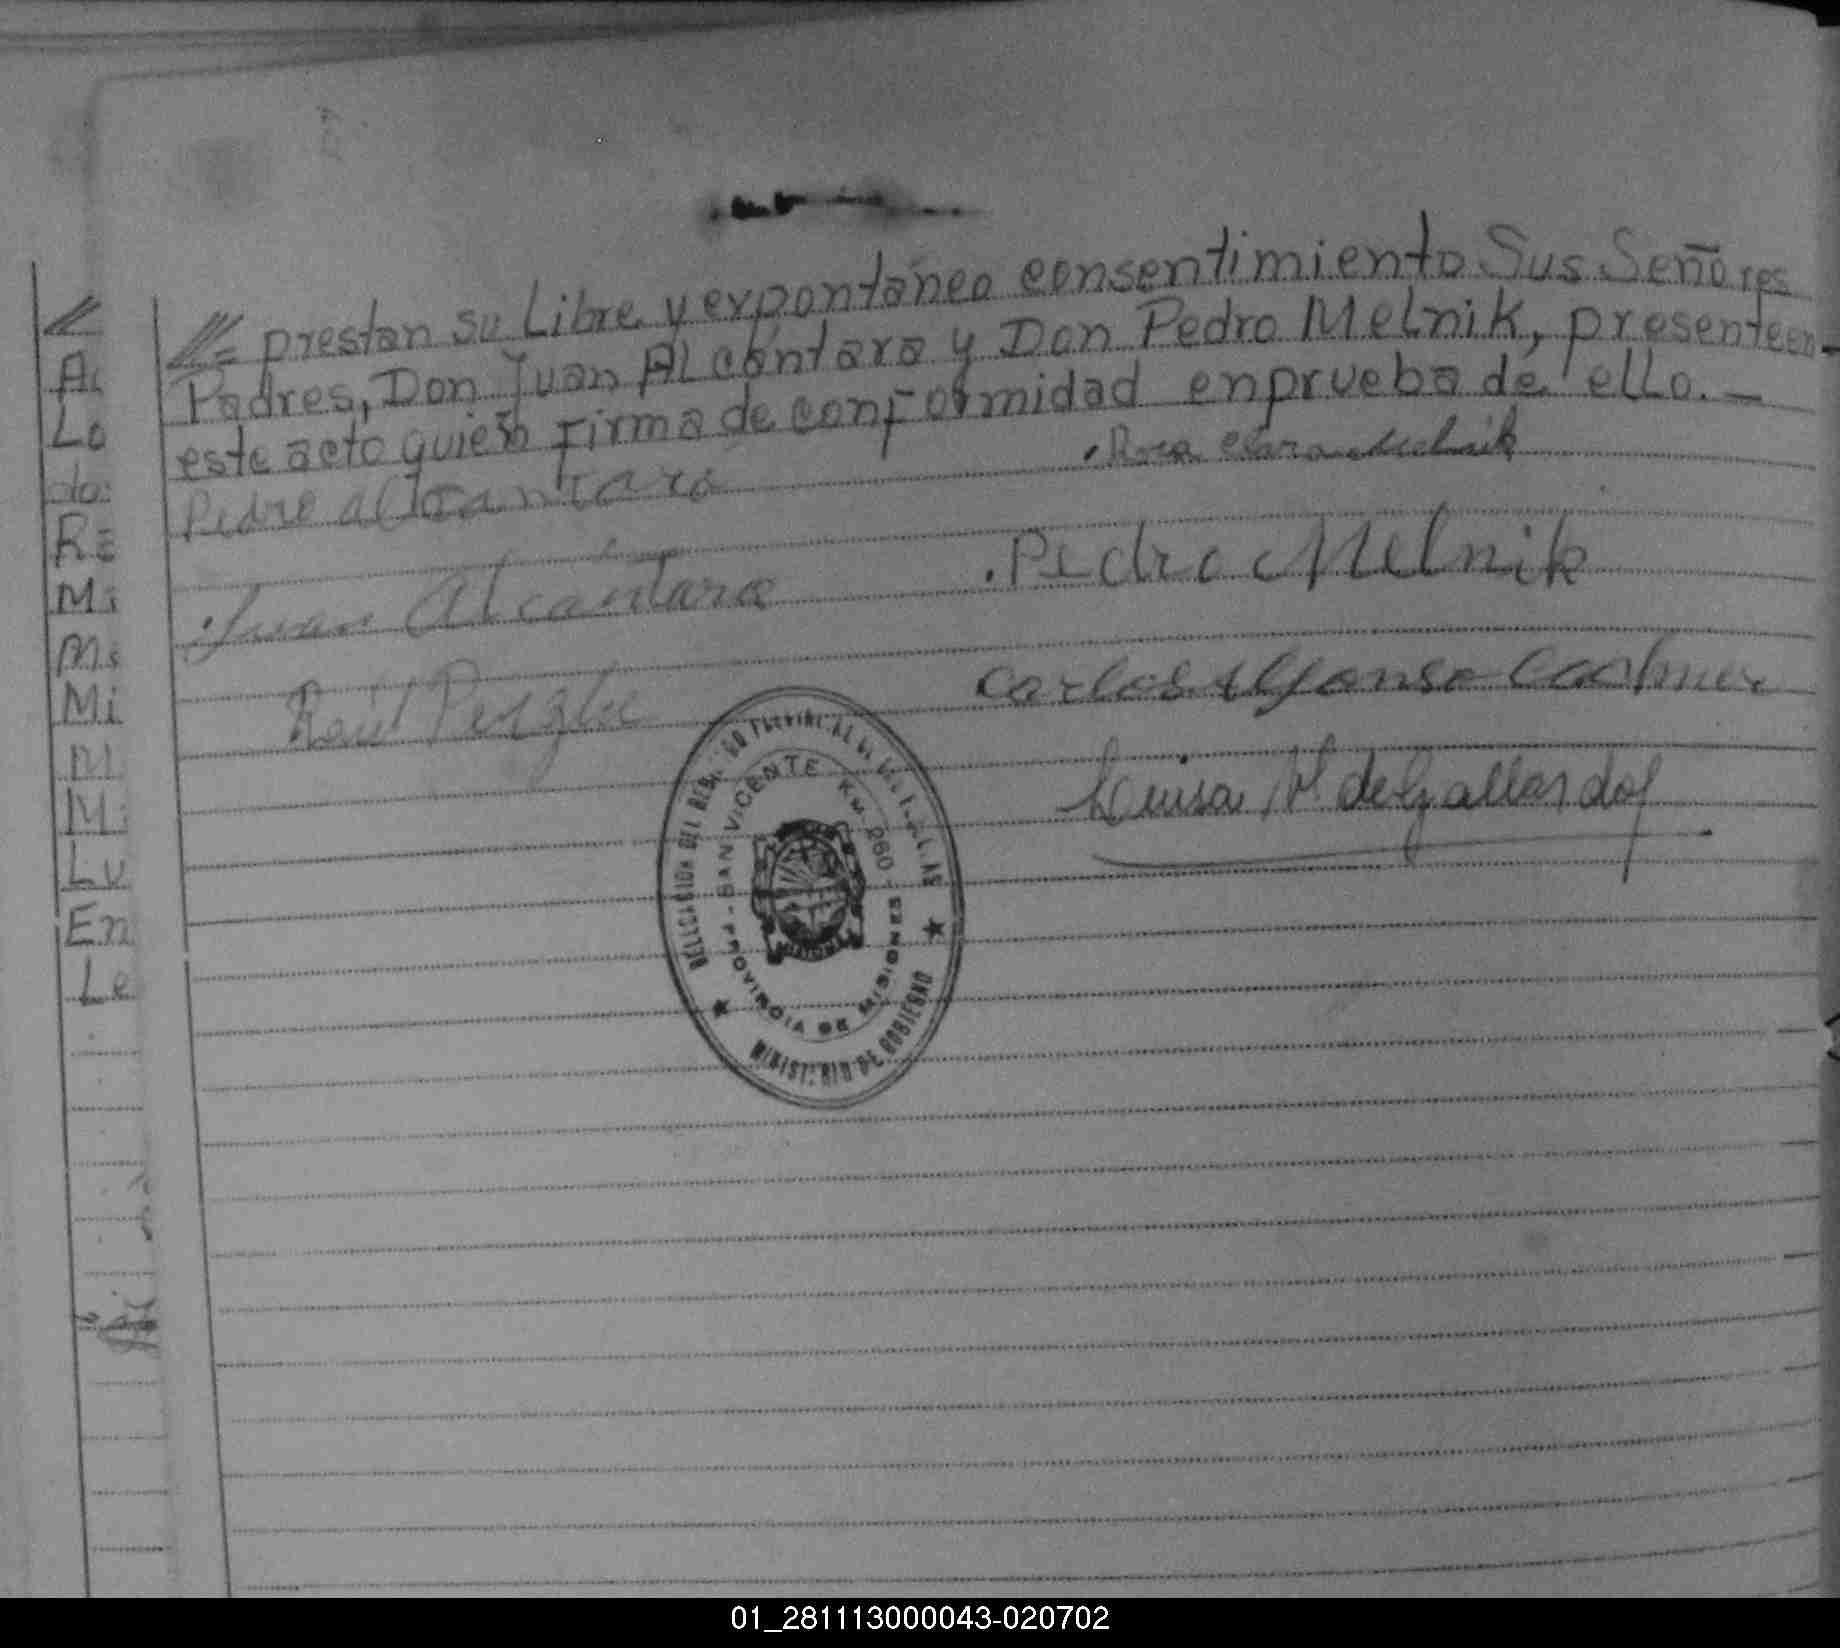 //= prestan su Libre y expontáneo consentimiento Sus Señores
Padres, Don Juan Alcántara y Don Pedro Melnik, presente en-
este acto quien firma de conformidad enprueba de ello.-
Pedro alcantara
Rosa Clara Melnik
Juan Alcantara
Pedro Melnik
Raúl
Carlos Alfonso
Luisa V. de Gallardo
DELEGACION DEL REGISTRO PROVINCIAL DE LAS PERSONAS
SAN VICENTE KM. 260
PROVINCIA DE MISIONES
MINISTERIO DE GOBIERNO
//
Al
Lo
do:
RE
Mi
Ms
Mi
M
Mi
Lu
En
Le
01_281113000043-020702